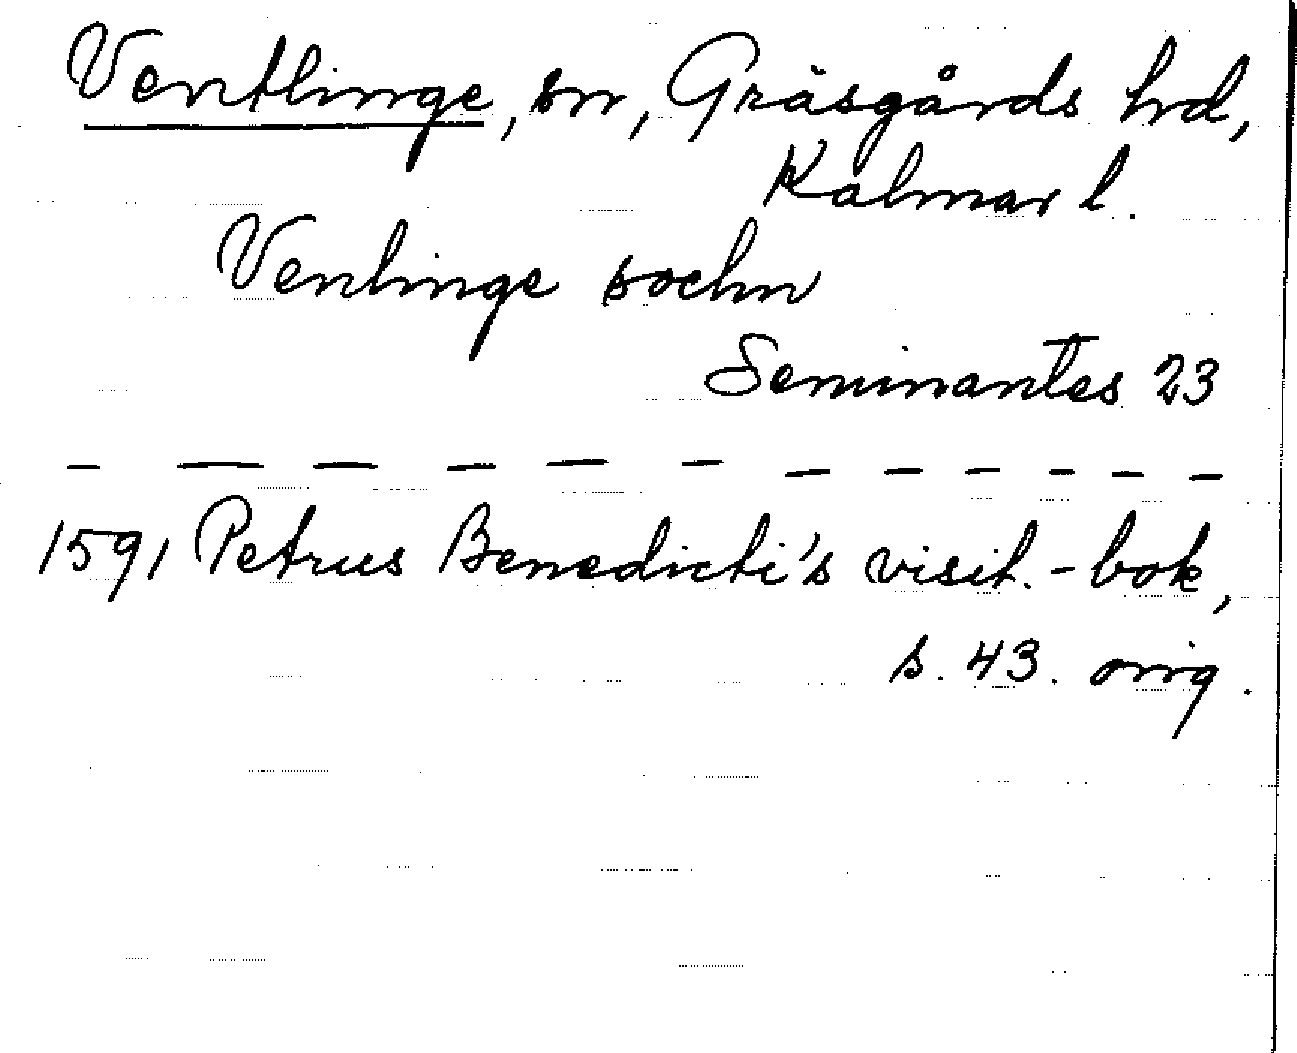 Ventlinge, sn, Gräsgårds hd,
Kalmar l.
Venlinge sochn
Seminantes 23
1591 Petrus Benedicti's visit.-bok,
s. 43. orig.